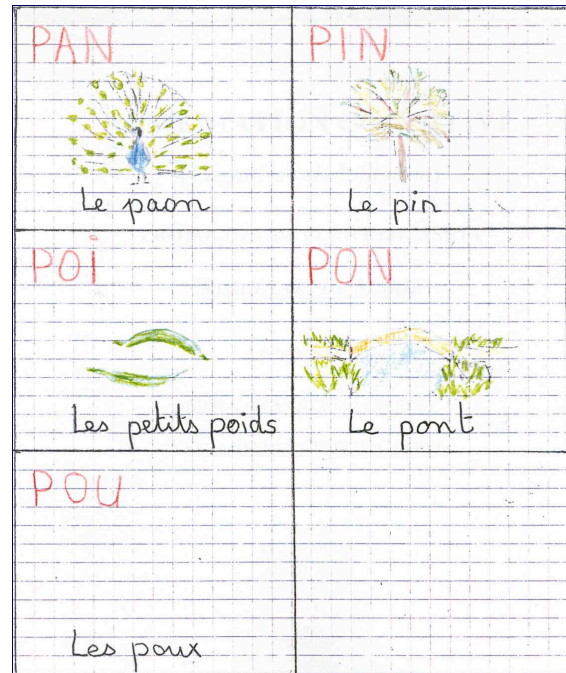 PAN
Le paon
PIN
Le pin
POi
Les petits poids
PON
Le pont
POU
Les poux